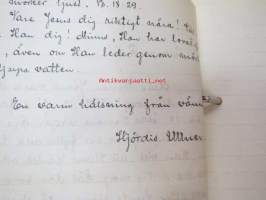 mörker ljus. Ps. 18:29.
Vare Jesus dig riktigt nära!
Han dig! Minns, Han har lovat
, även om Han leder genom
djupa vatten.
En varm hälsning från
Hjördis Ullner
Antikvariaatti.net